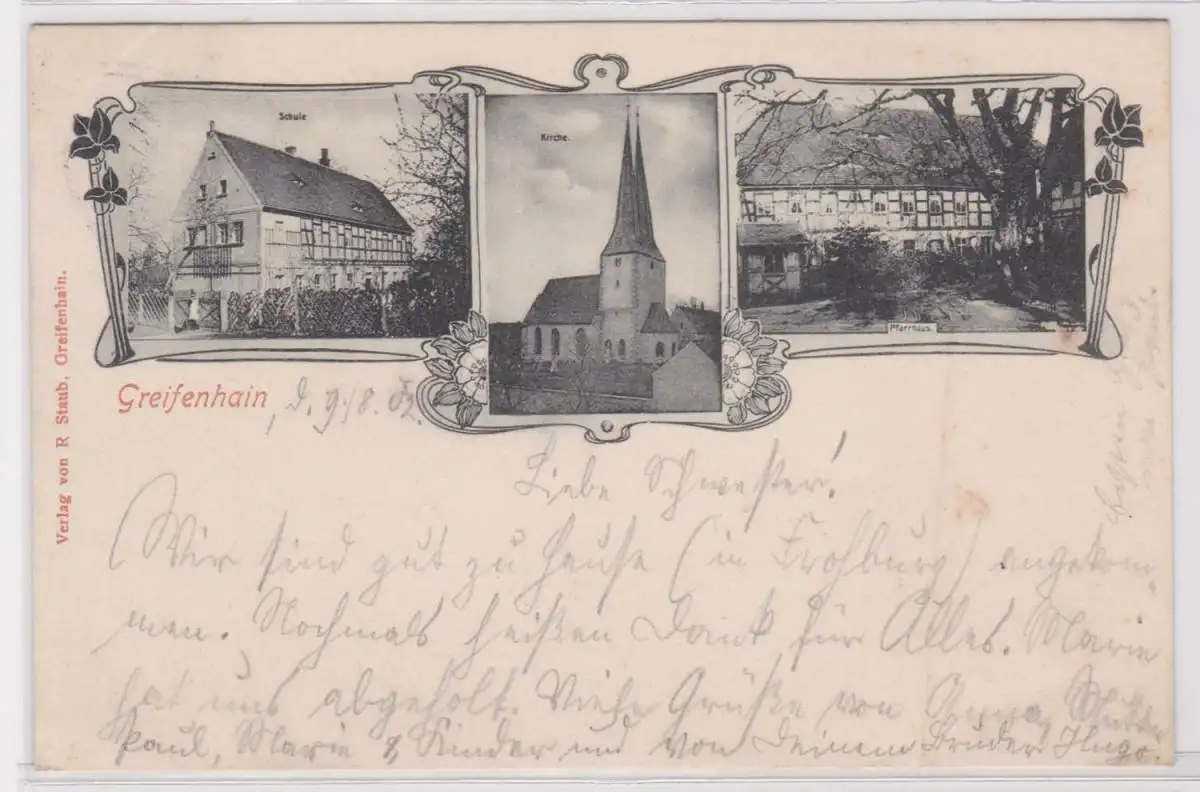 Schule
Kirche.
Pfarrhaus.
Verlag von R Staub, Greifenhain.
Greifenhain, d. 9./8. 02.
Liebe Schwester!
Wir sind gut zu Hause (in Frohburg) angekom-
men. Nochmals heißen Dank für Alles. Marie
hat uns abgeholt. Viele Grüße von Anna, Mutter
Paul, Marie & Kinder und von Deinem Bruder Hugo.